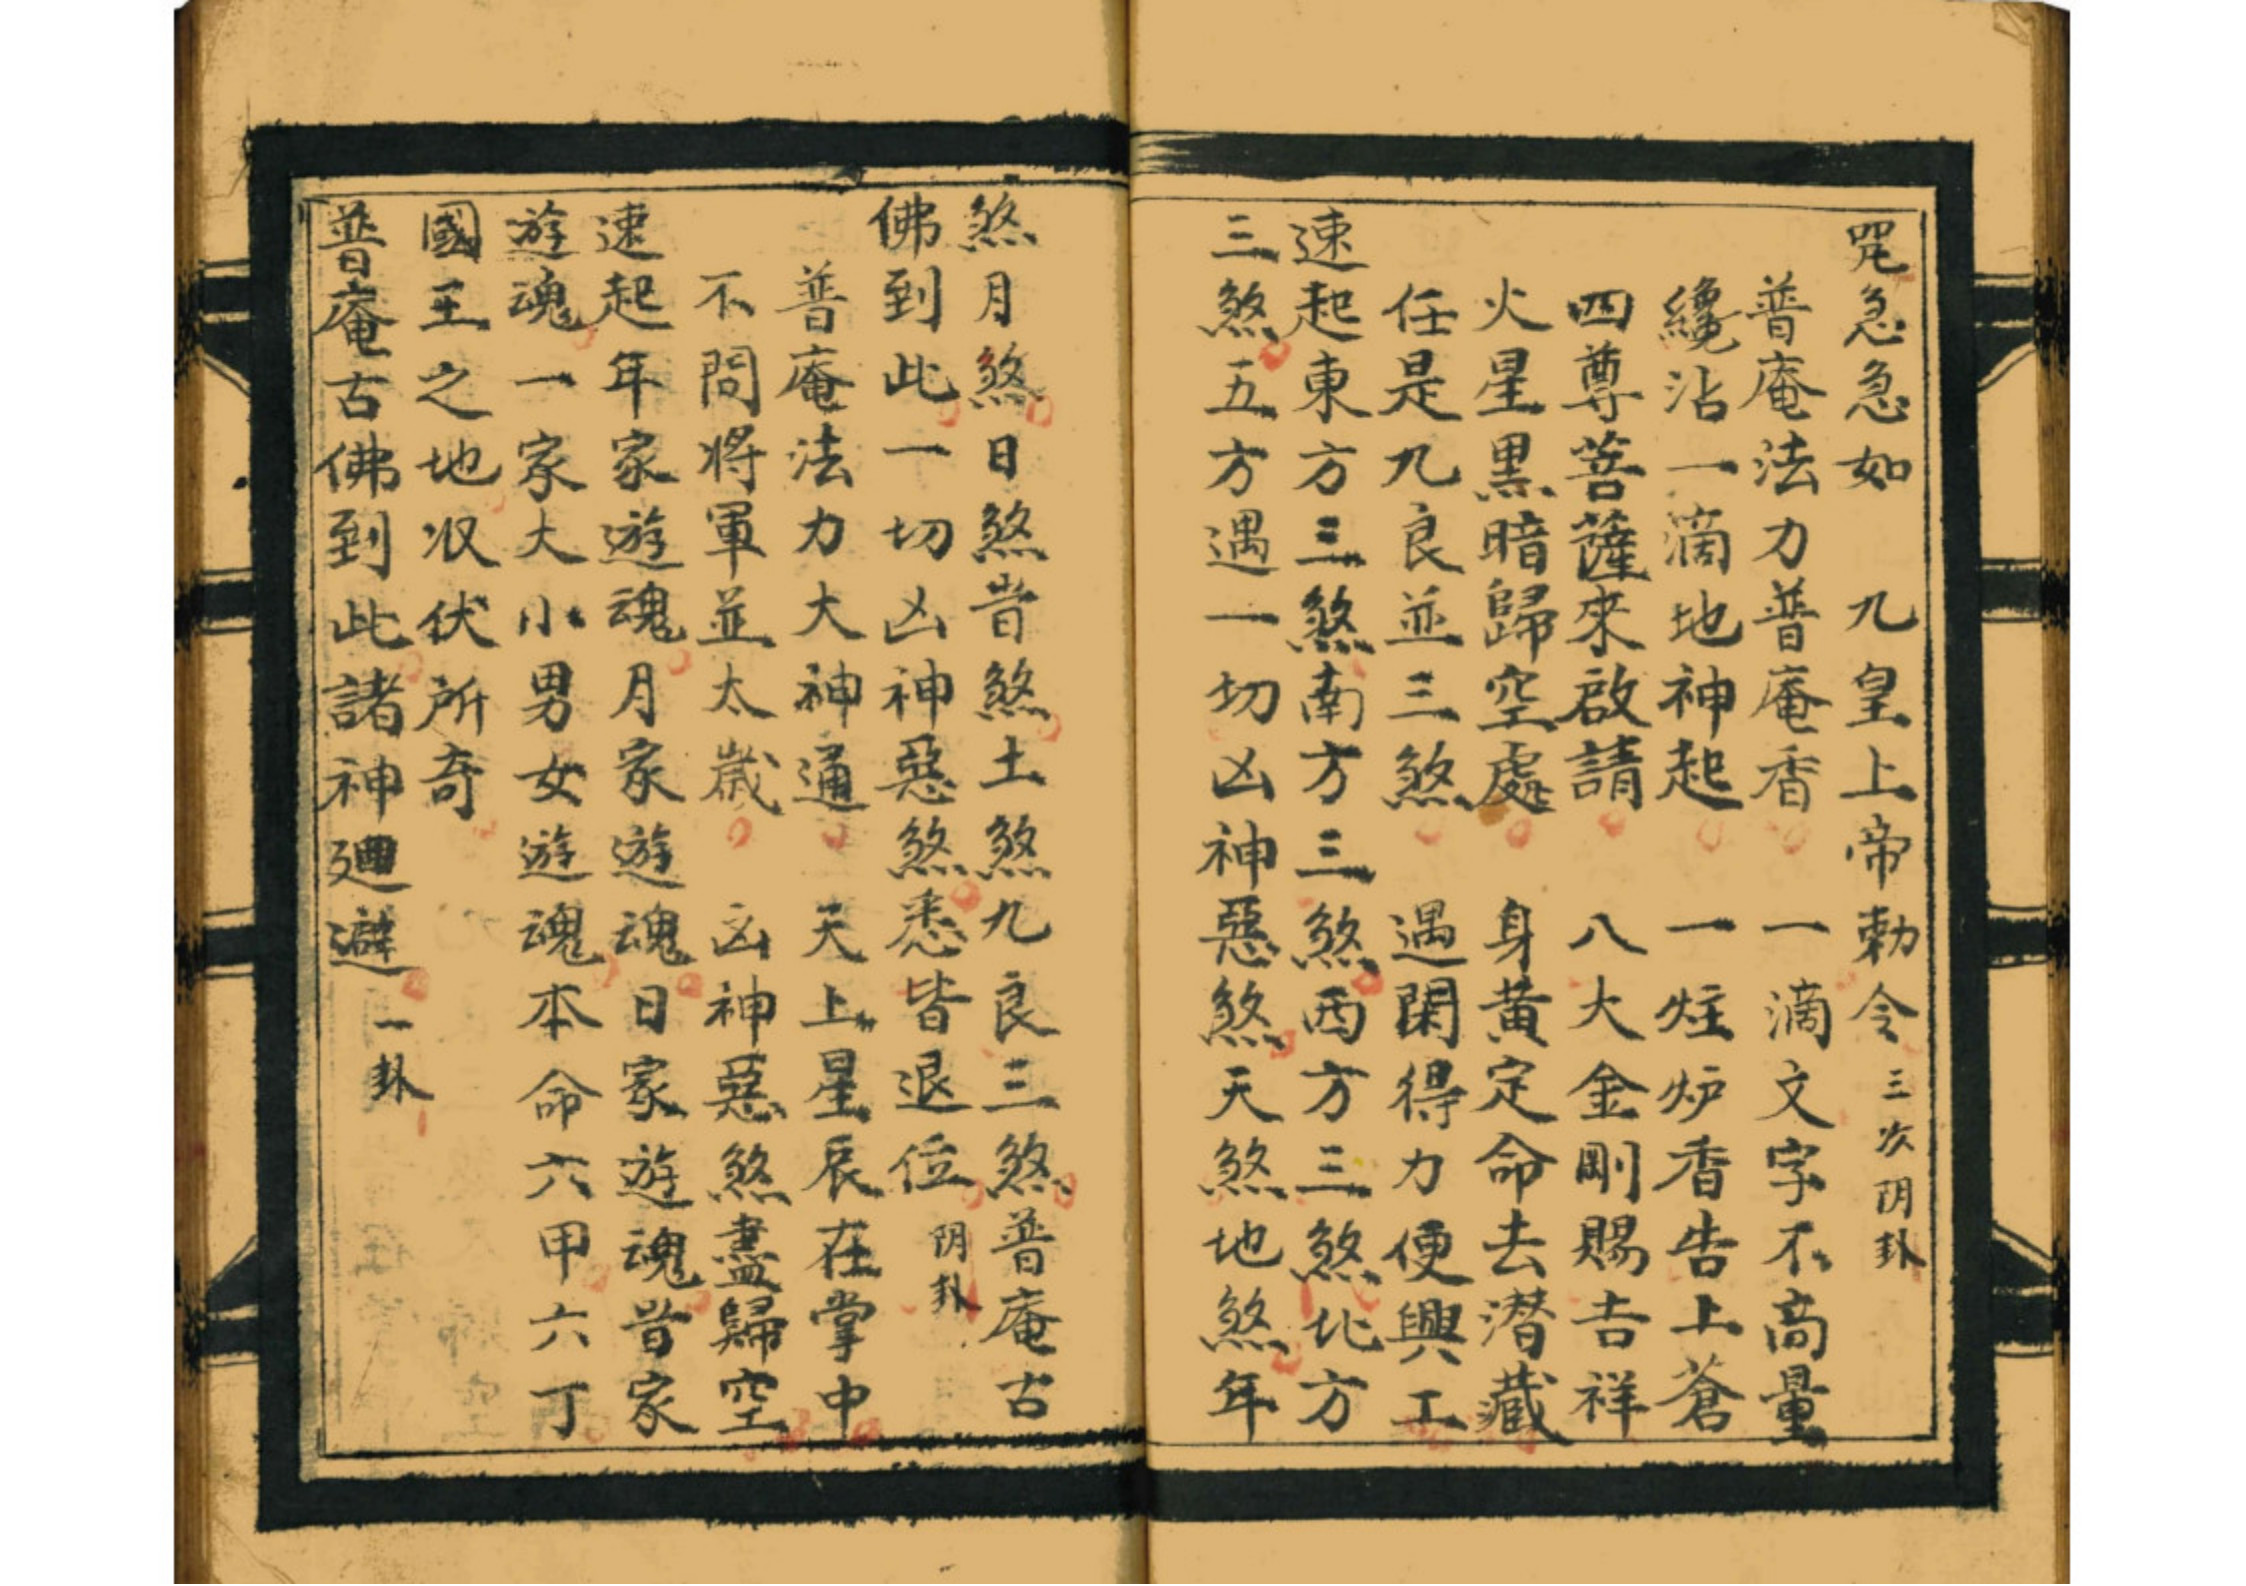 咒急急如　九皇上帝勅令 三次阴卦
普庵法力普庵香　一滴文字不商量
纔沾一滴地神起　一炷炉香告上蒼
四尊菩薩來啟請　八大金剛賜吉祥
火星黑暗歸空處　身黄定命去潜藏
任是九良並三煞　遇闲得力便興工
速起東方三煞南方三煞西方三煞北方
三煞五方遇一切凶神惡煞天煞地煞年
煞月煞日煞旹煞土煞九良三煞普庵古
佛到此一切凶神惡煞悉皆退位 阴卦
普庵法力大神通　天上星辰在掌中
不問将軍並太歲　凶神惡煞盡歸空
速起年家遊魂月家遊魂日家遊魂旹家
遊魂一家大小男女遊魂本命六甲六丁
國王之地收伏所奇
普庵古佛到此諸神廻避 一卦